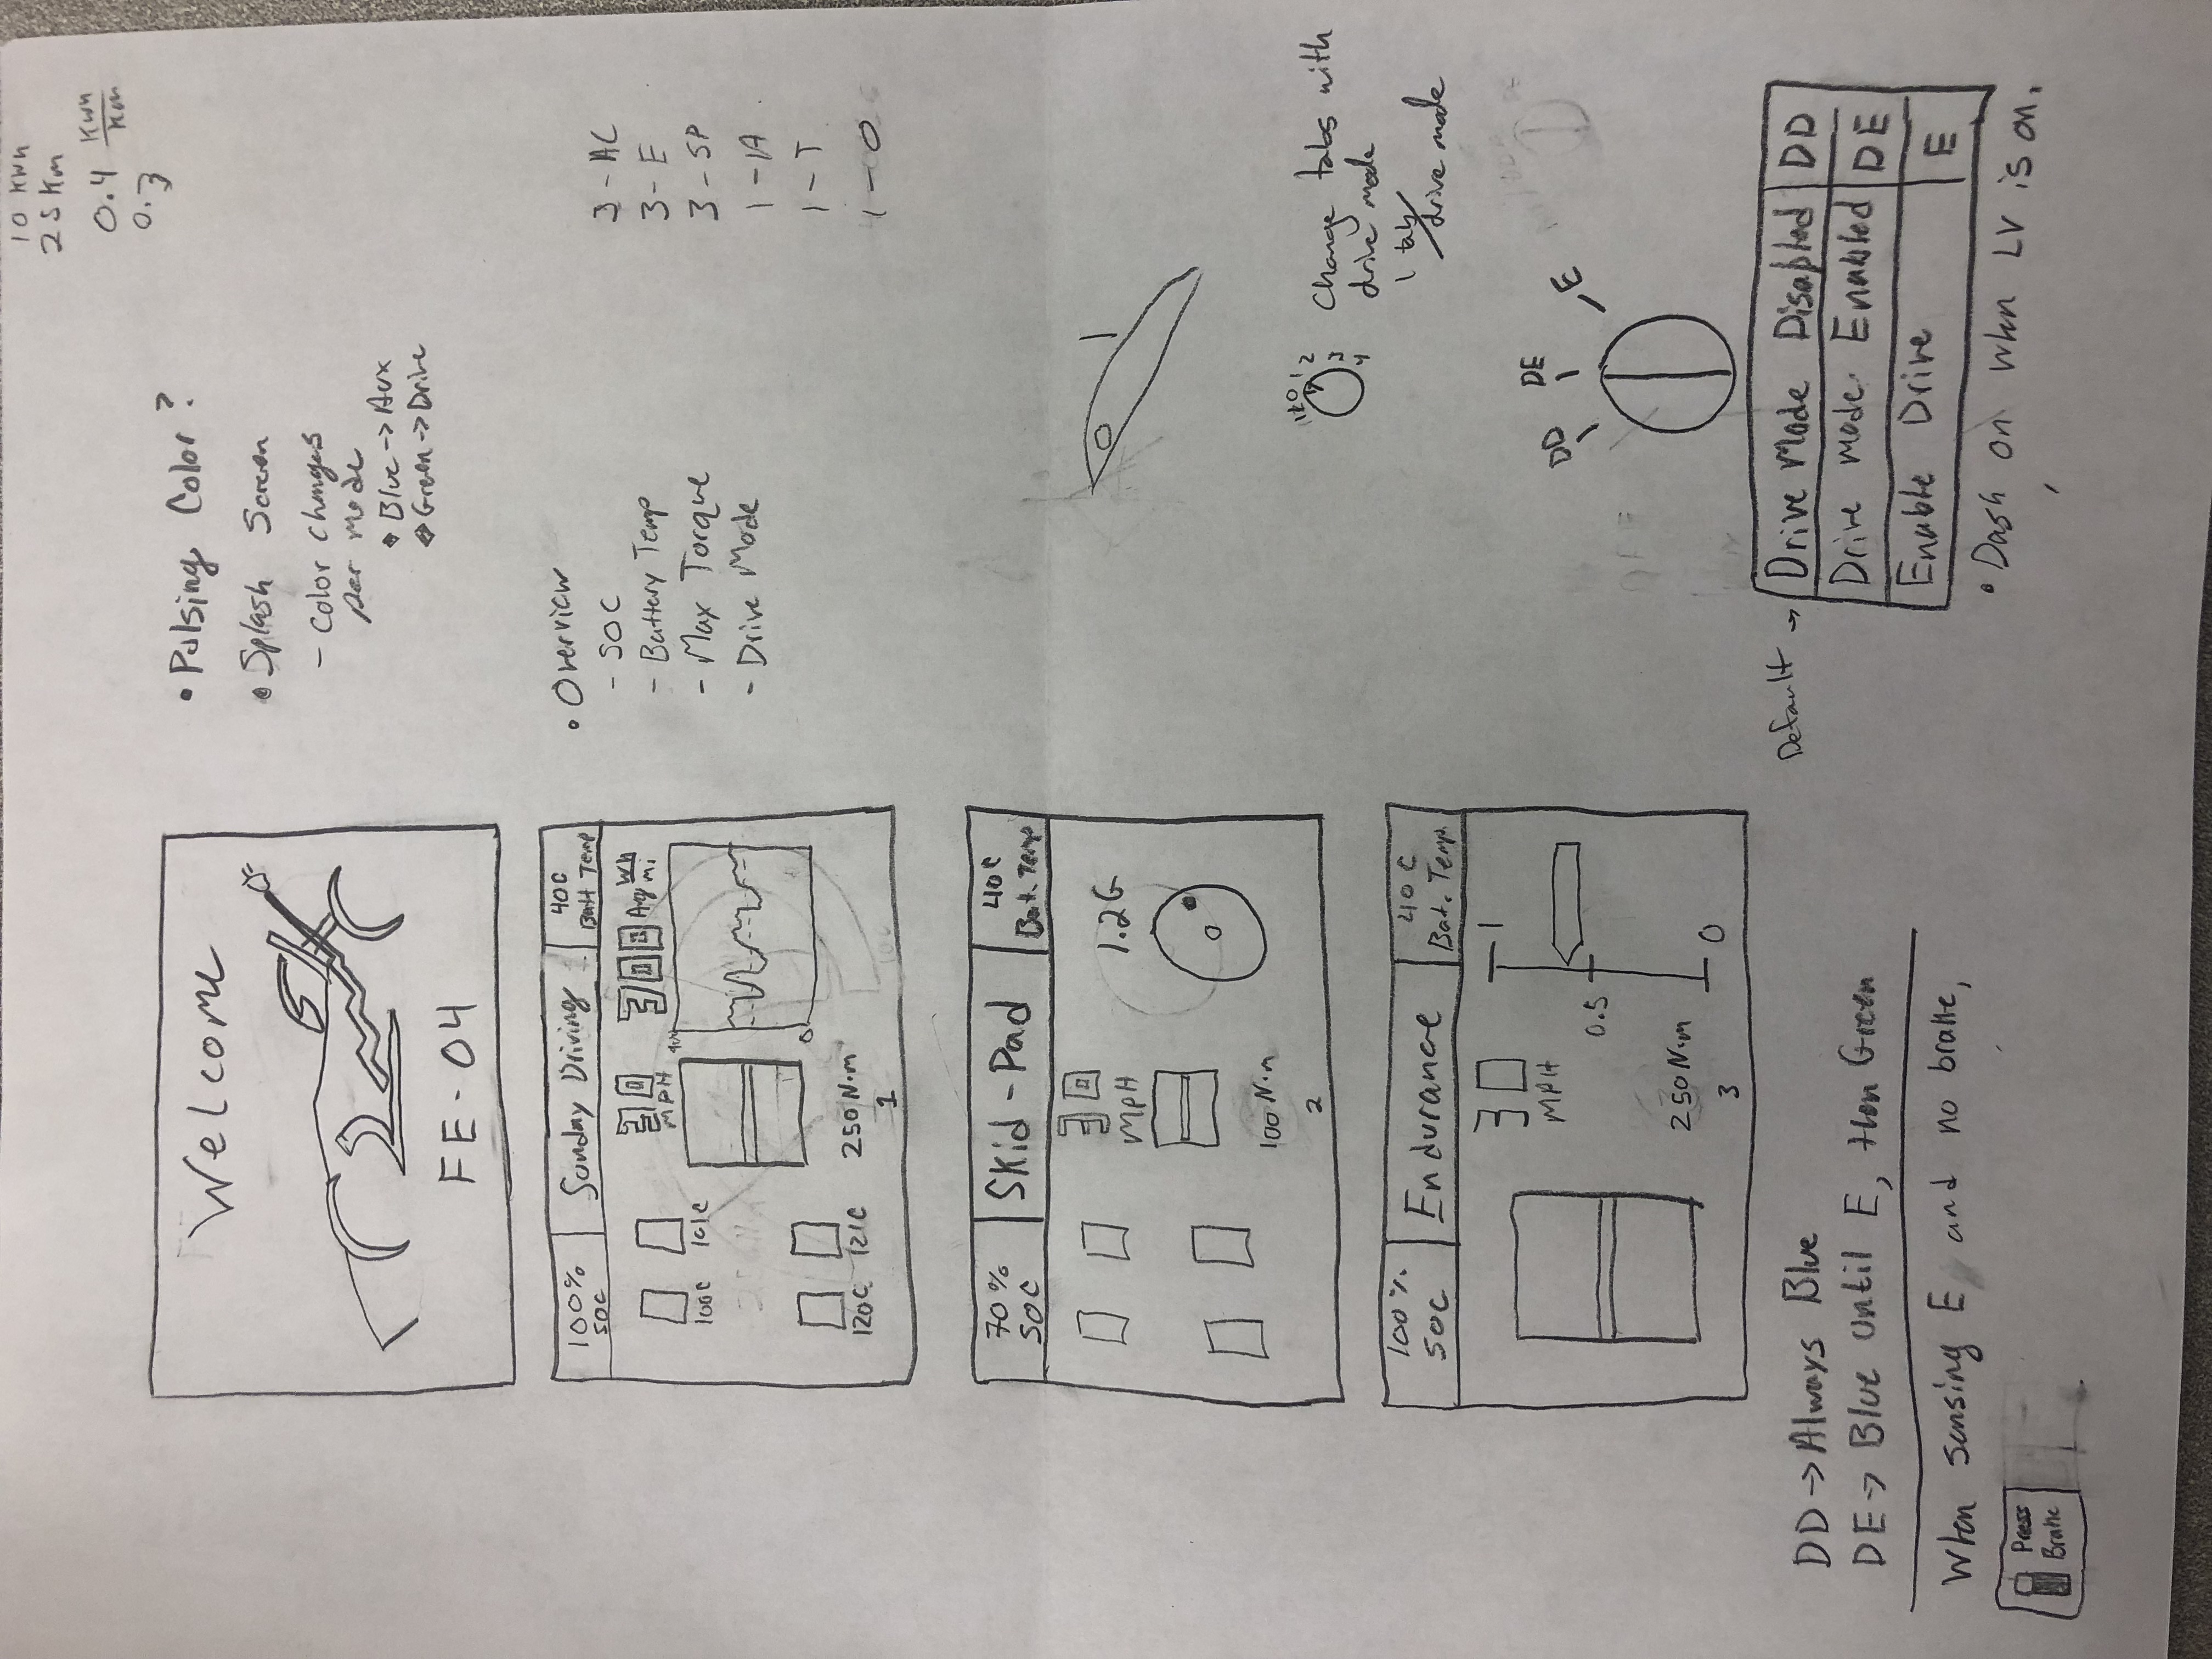 10 KWh
25 Km
0.4 KWh/Km
0.3
Welcome
FE-04
• Pulsing Color?
• Splash Screen
- Color changes
per mode
Blue -> Aux
Green -> Drive
100%
SOC
Sunday Driving
40C
Batt Temp
30
MPH
300 Avg Wh/mi
100C
101C
400
0
120C
121C
250 N·m
1
• Overview
- SOC
- Battery Temp
- Max Torque
- Drive Mode
3 - AC
3 - E
3 - SP
1 - 1A
1 - T
1 - O
70%
SOC
Skid-Pad
40C
Bat. Temp
30
MPH
1.2G
100 N·m
2
1
0 1 2
3
4
Change tabs with
drive mode
1 tab/
drive mode
100%
SOC
Endurance
40C
Bat. Temp.
30
MPH
1
0.5
250 N·m
0
3
DD
DE
E
Default ->
Drive Mode Disabled DD
Drive mode Enabled DE
Enable Drive E
• Dash on when LV is on.
DD -> Always Blue
DE -> Blue until E, then Green
When sensing E and no brake,
Press
Brake